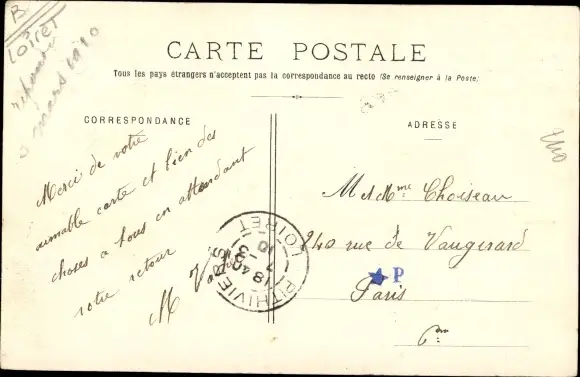 B
LOIRET
mars 1910
CARTE POSTALE
Tous les pays étrangers n'acceptent pas la correspondance au recto (Se renseigner à la Poste)
CORRESPONDANCE
Merci de votre
aimable carte et bien des
choses a tous en attendant
votre retour
M
ADRESSE
M et Mme Choiseau
240 rue de Vaugirard
Paris
PITHIVIERS
18 40
7 - 3
10
LOIRET
P